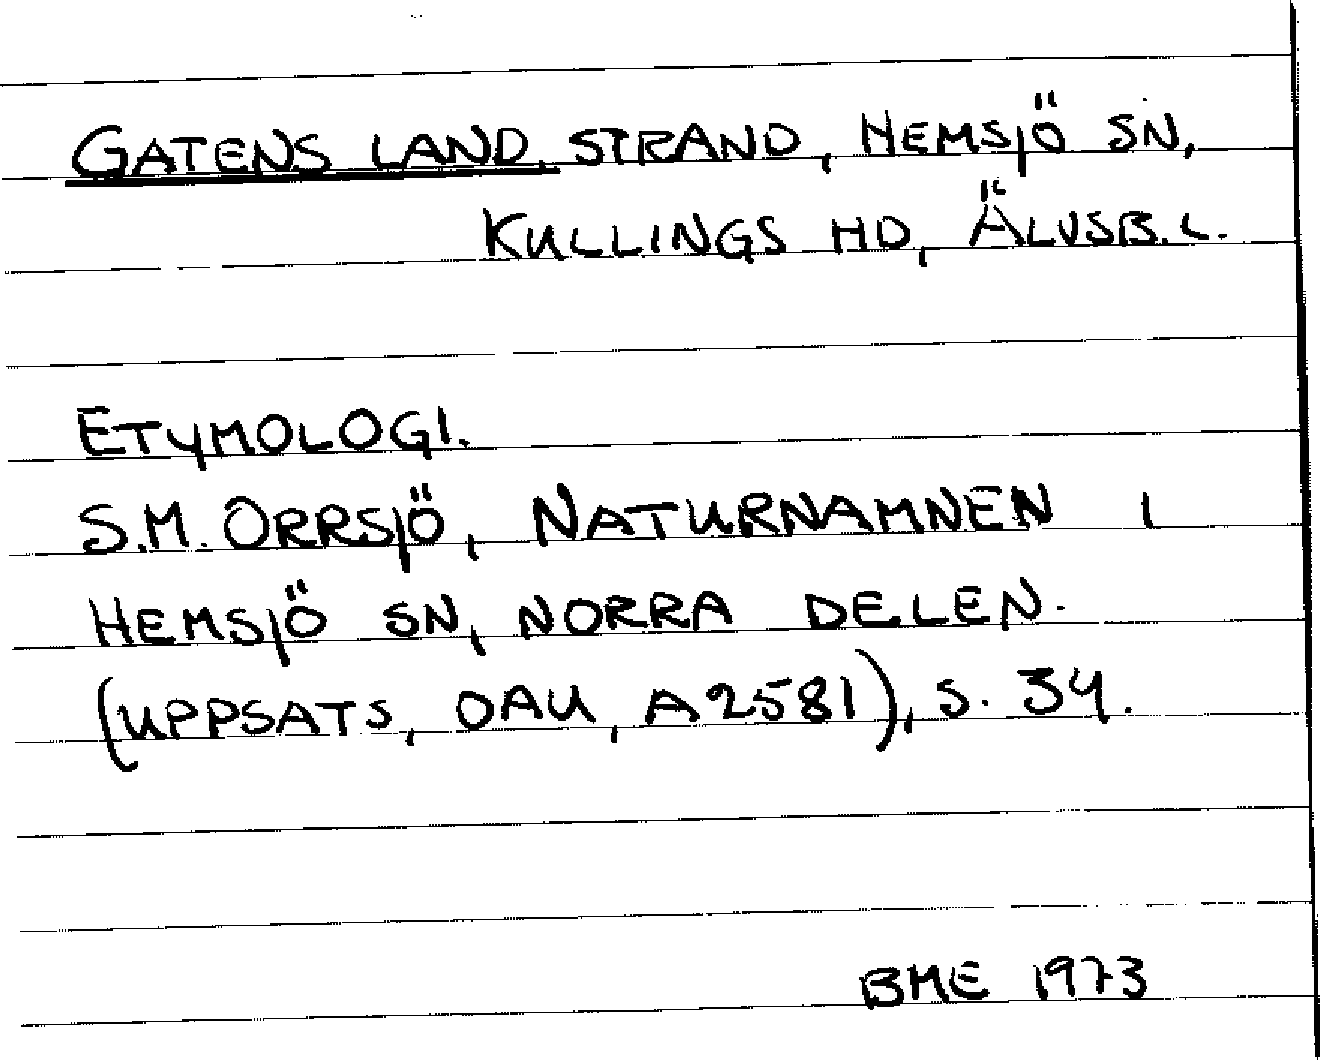 GATENS LAND, STRAND, HEMSJÖ SN,
KULLINGS HD, ÄLVSB. L.
ETYMOLOGI.
S.M. ORRSJÖ, NATURNAMNEN I
HEMSJÖ SN, NORRA DELEN.
(UPPSATS, OAU, A2581), S. 34.
BME 1973